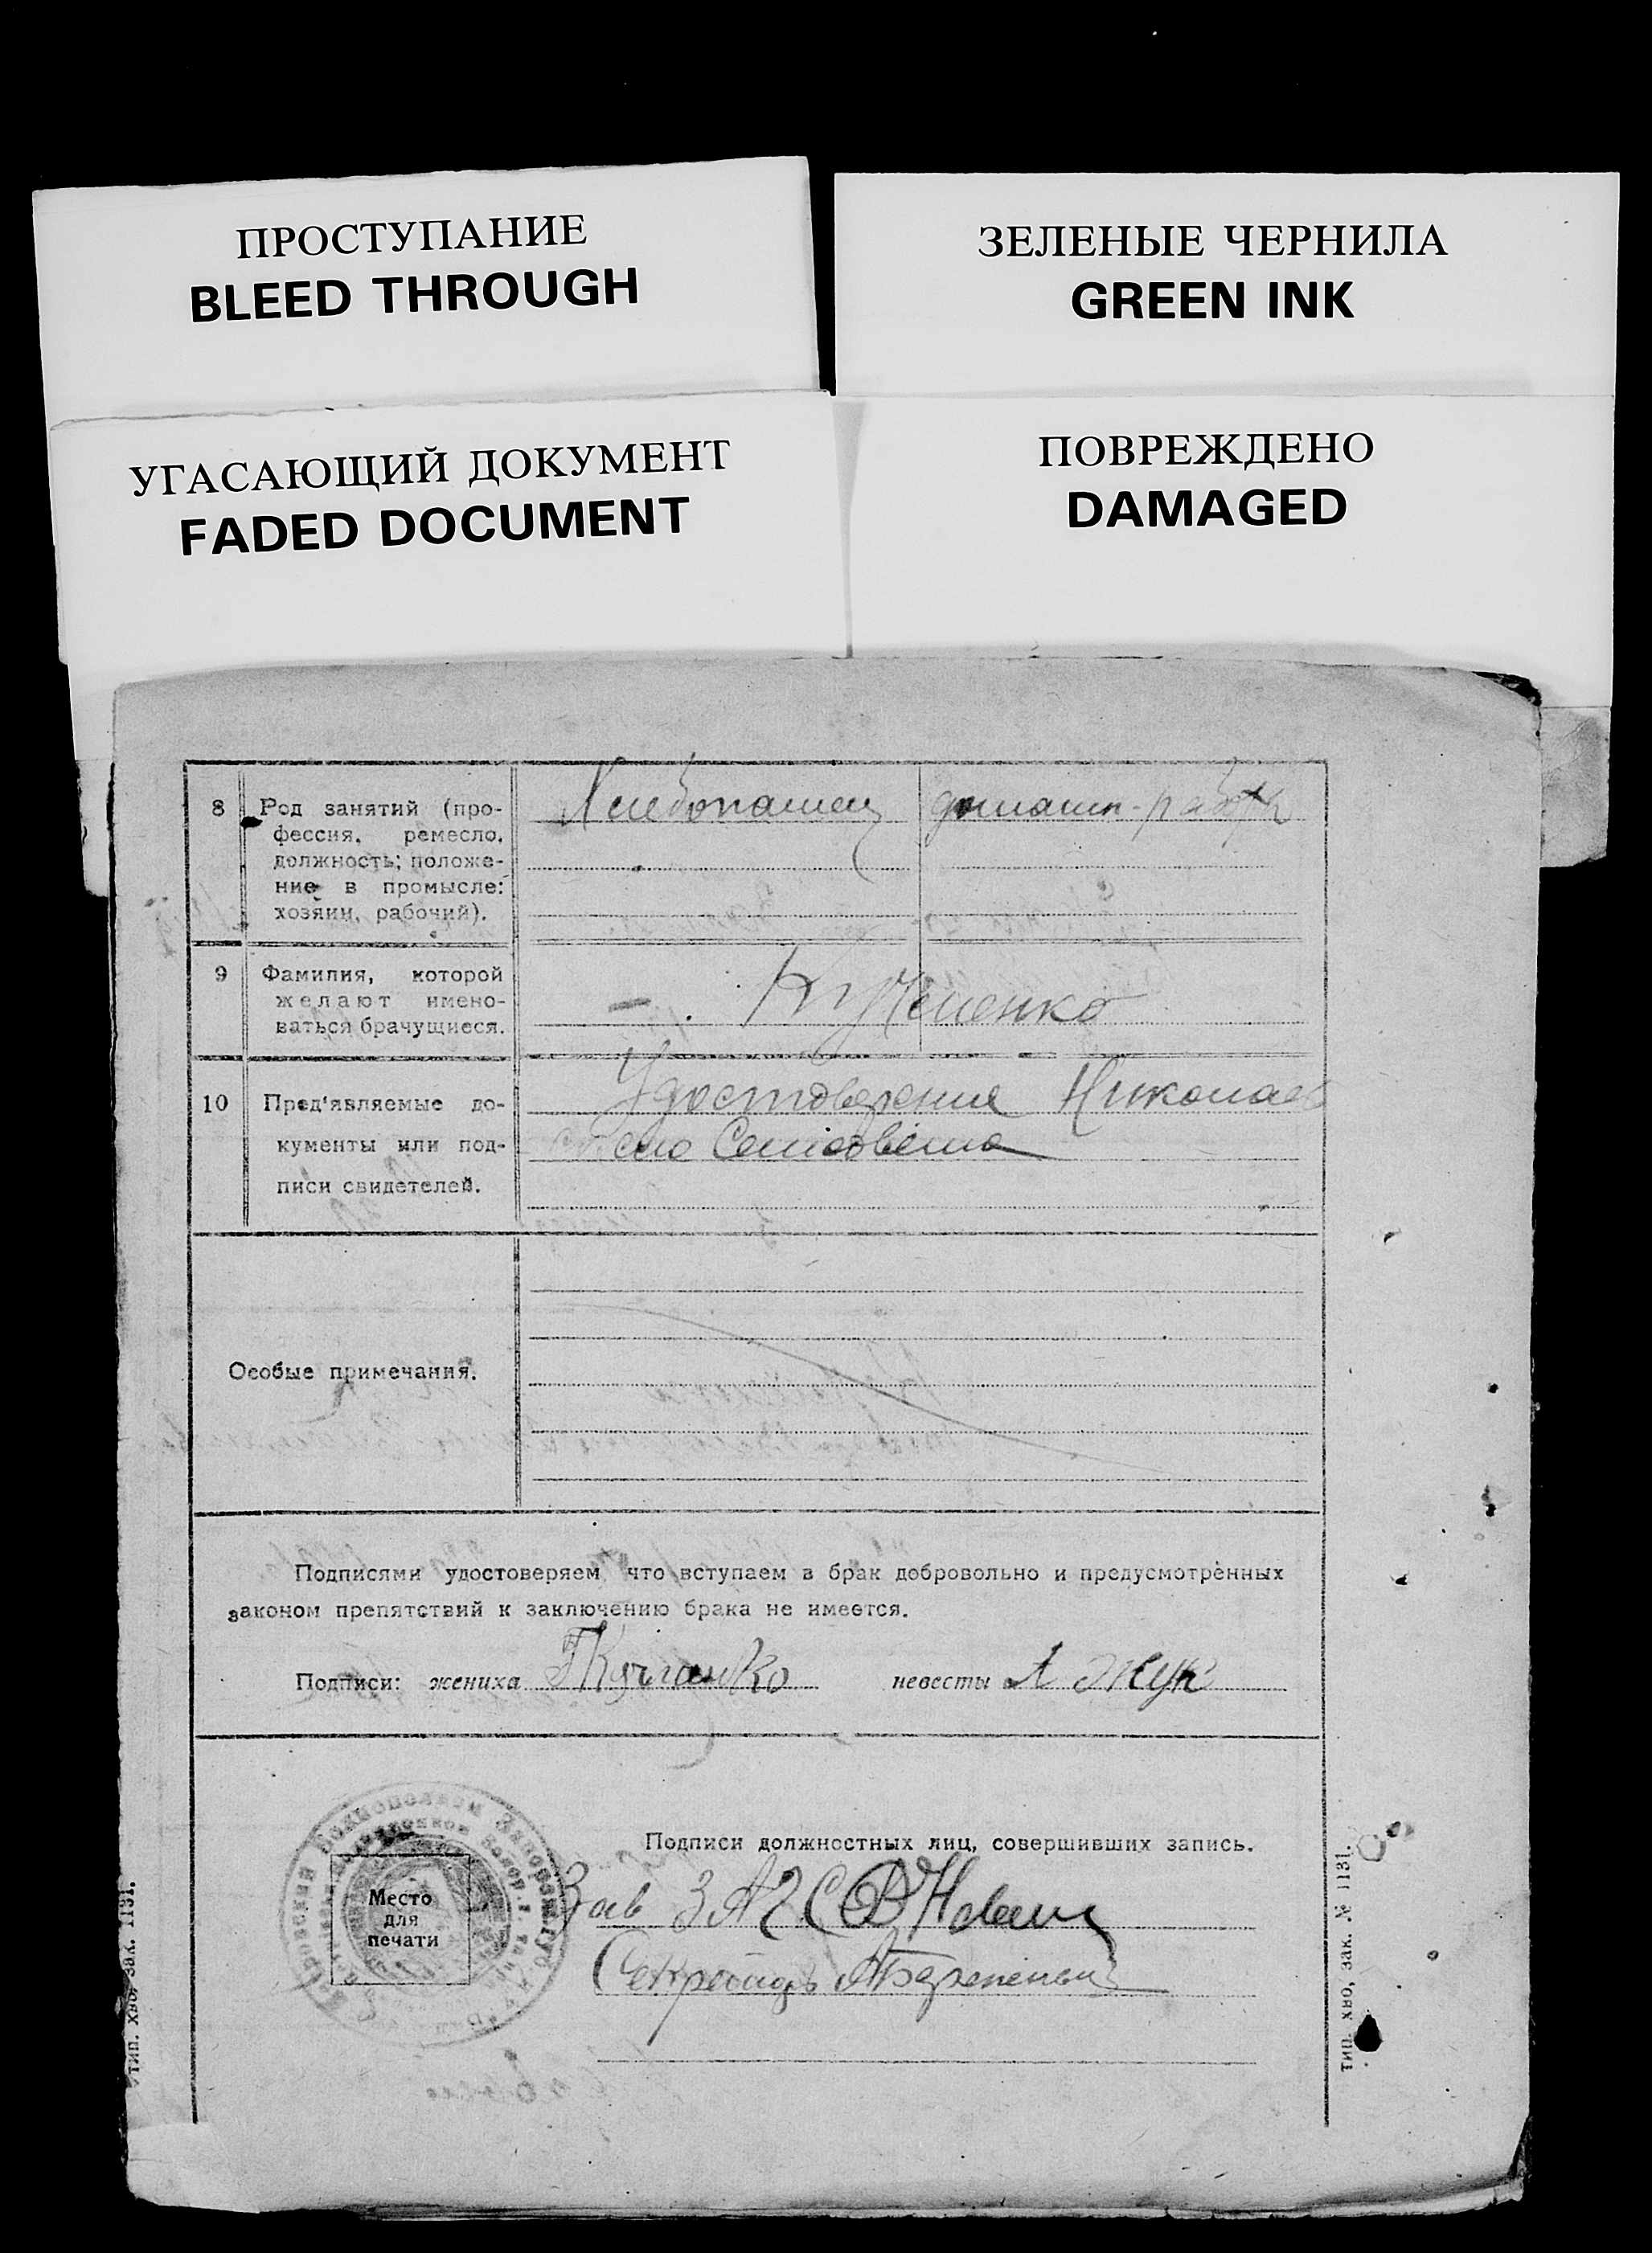 ПРОСТУПАНИЕ
BLEED THROUGH
ЗЕЛЕНЫЕ ЧЕРНИЛА
GREEN INK
УГАСАЮЩИЙ ДОКУМЕНТ
FADED DOCUMENT
ПОВРЕЖДЕНО
DAMAGED
8 Род занятий (про-
фессия, ремесло,
должность; положе-
ние в промысле:
хозяин, рабочий).
Хлебопашец
домашн-
9 Фамилия, которой
желают имено-
ваться брачущиеся.
Кучменко
10 Пред'являемые до-
кументы или под-
писи свидетелей.
Удостоверения Николаев
Сельсовета
Особые примечания.
Подписями удостоверяем что вступаем в брак добровольно и предусмотренных
законом препятствий к заключению брака не имеется.
Подписи: жениха
невесты Жук
Место
для
печати
Подписи должностных лиц, совершивших запись.
Зав ЗАГС
Секретарь
тип. хво, зак. 1131.
тип. хво, зак. № 1131.